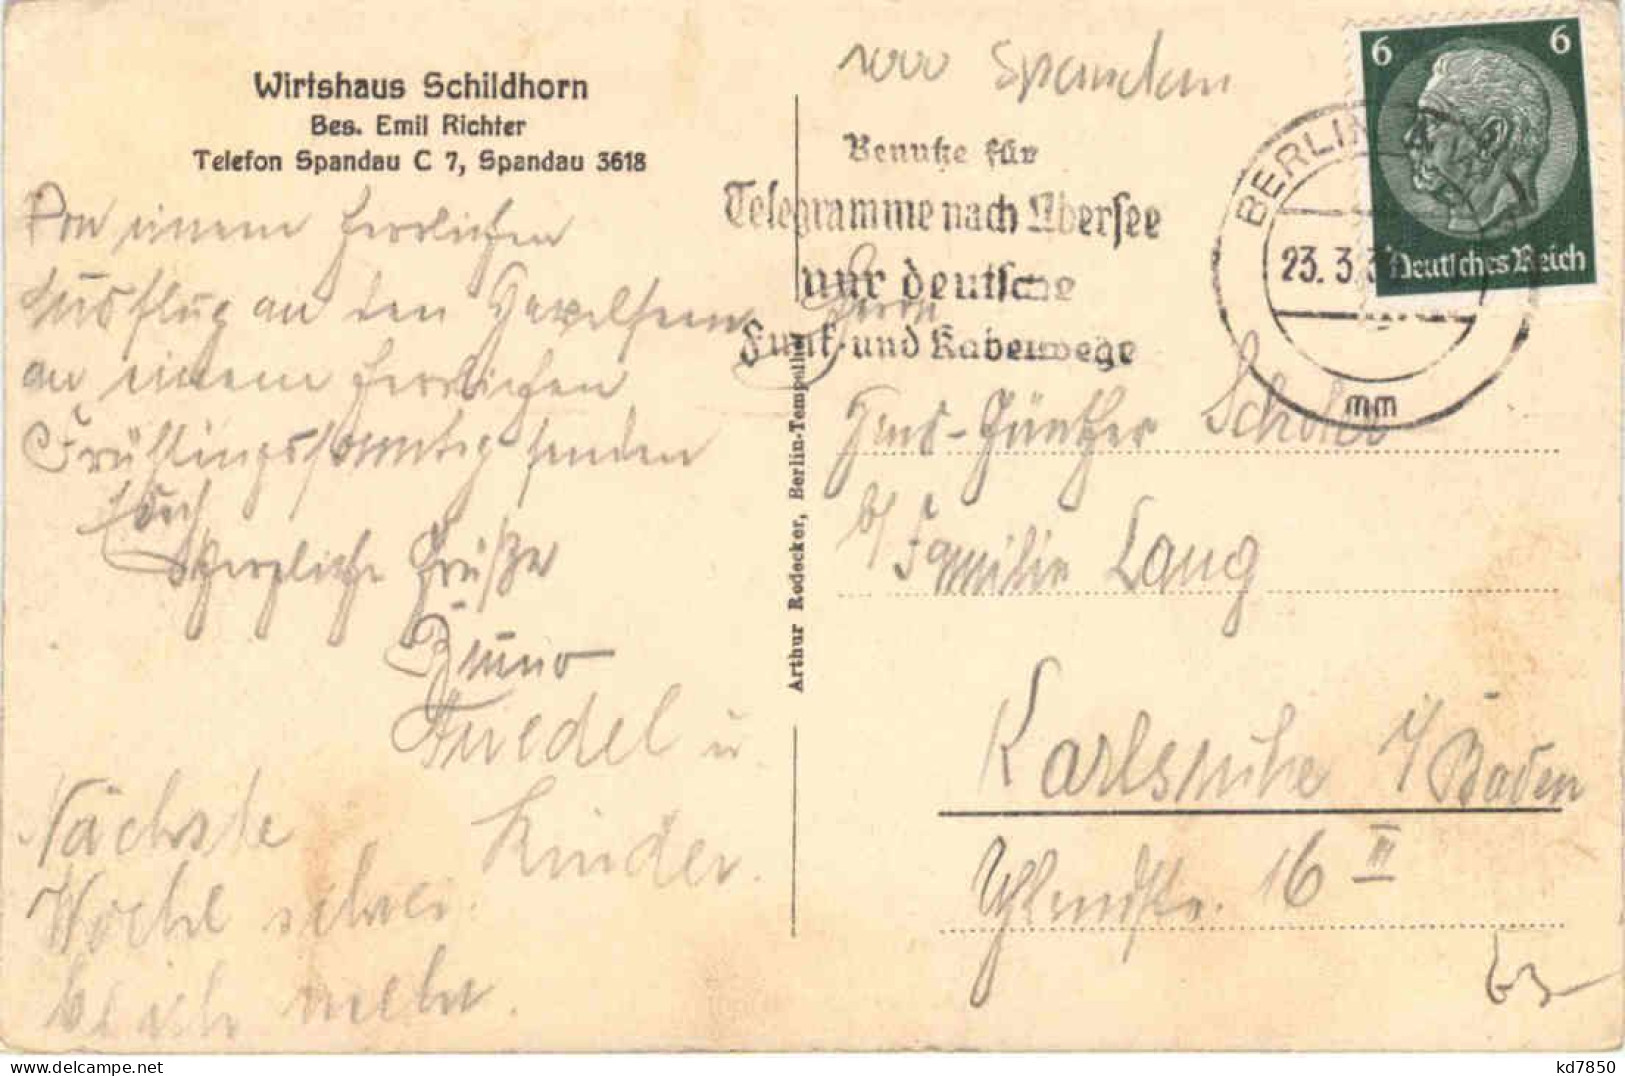 Wirtshaus Schildhorn
Bes. Emil Richter
Telefon Spandau C 7, Spandau 3618
Von einem herrlichen
Ausflug an den Havelseen
an einem herrlichen
Frühlingssonntag senden
Euch
herzliche Grüße
Bruno
Friedel u.
Kinder.
Nächste
Woche schrei
be ich mehr.
Arthur Redecker, Berlin-Tempelhof
Spandau
Benutze für
Telegramme nach Übersee
nur deutsche
Funk- und Kabelwege
BERLIN
23. 3. 3
mm
6 6
Deutsches Reich
Herrn
Hans-Günther Scholer
b/ Familie Lang
Karlsruhe i/Baden
16 III
63
kd7850